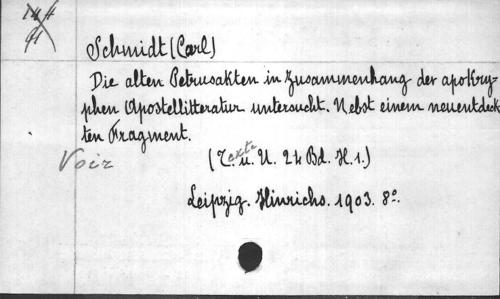 Schmidt (Carl)
Die alten Petrusakten im Zusammenhang der apokry-
phen Apostellitteratur untersucht. Nebst einem neuentdeck-
ten Fragment.
Voir (Texte u. U. 24 Bd. H.1.)
Leipzig. Hinrichs. 1903. 8º.